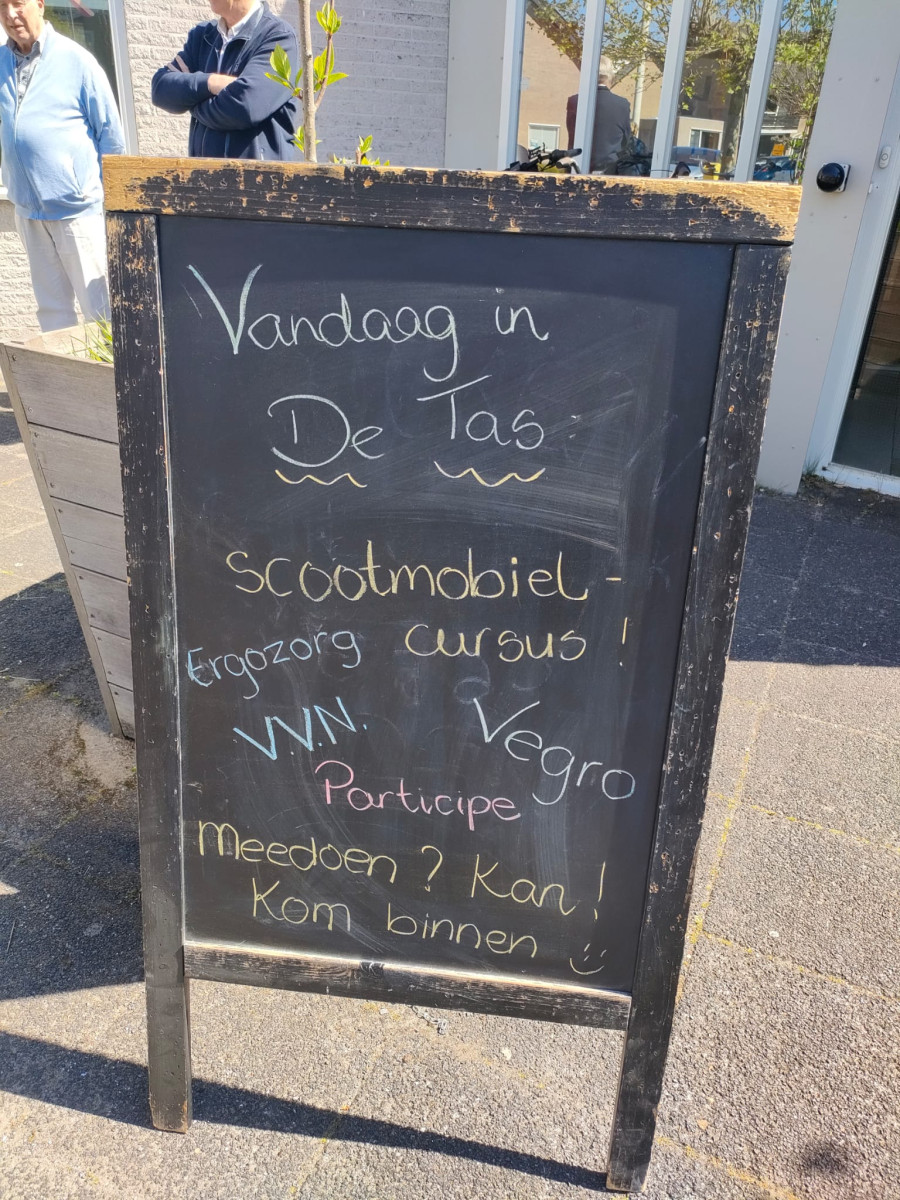 Vandaag in
De Tas
scootmobiel -
cursus !
Ergozorg
V.V.N.
Vegro
Participe
Meedoen ? Kan !
Kom binnen